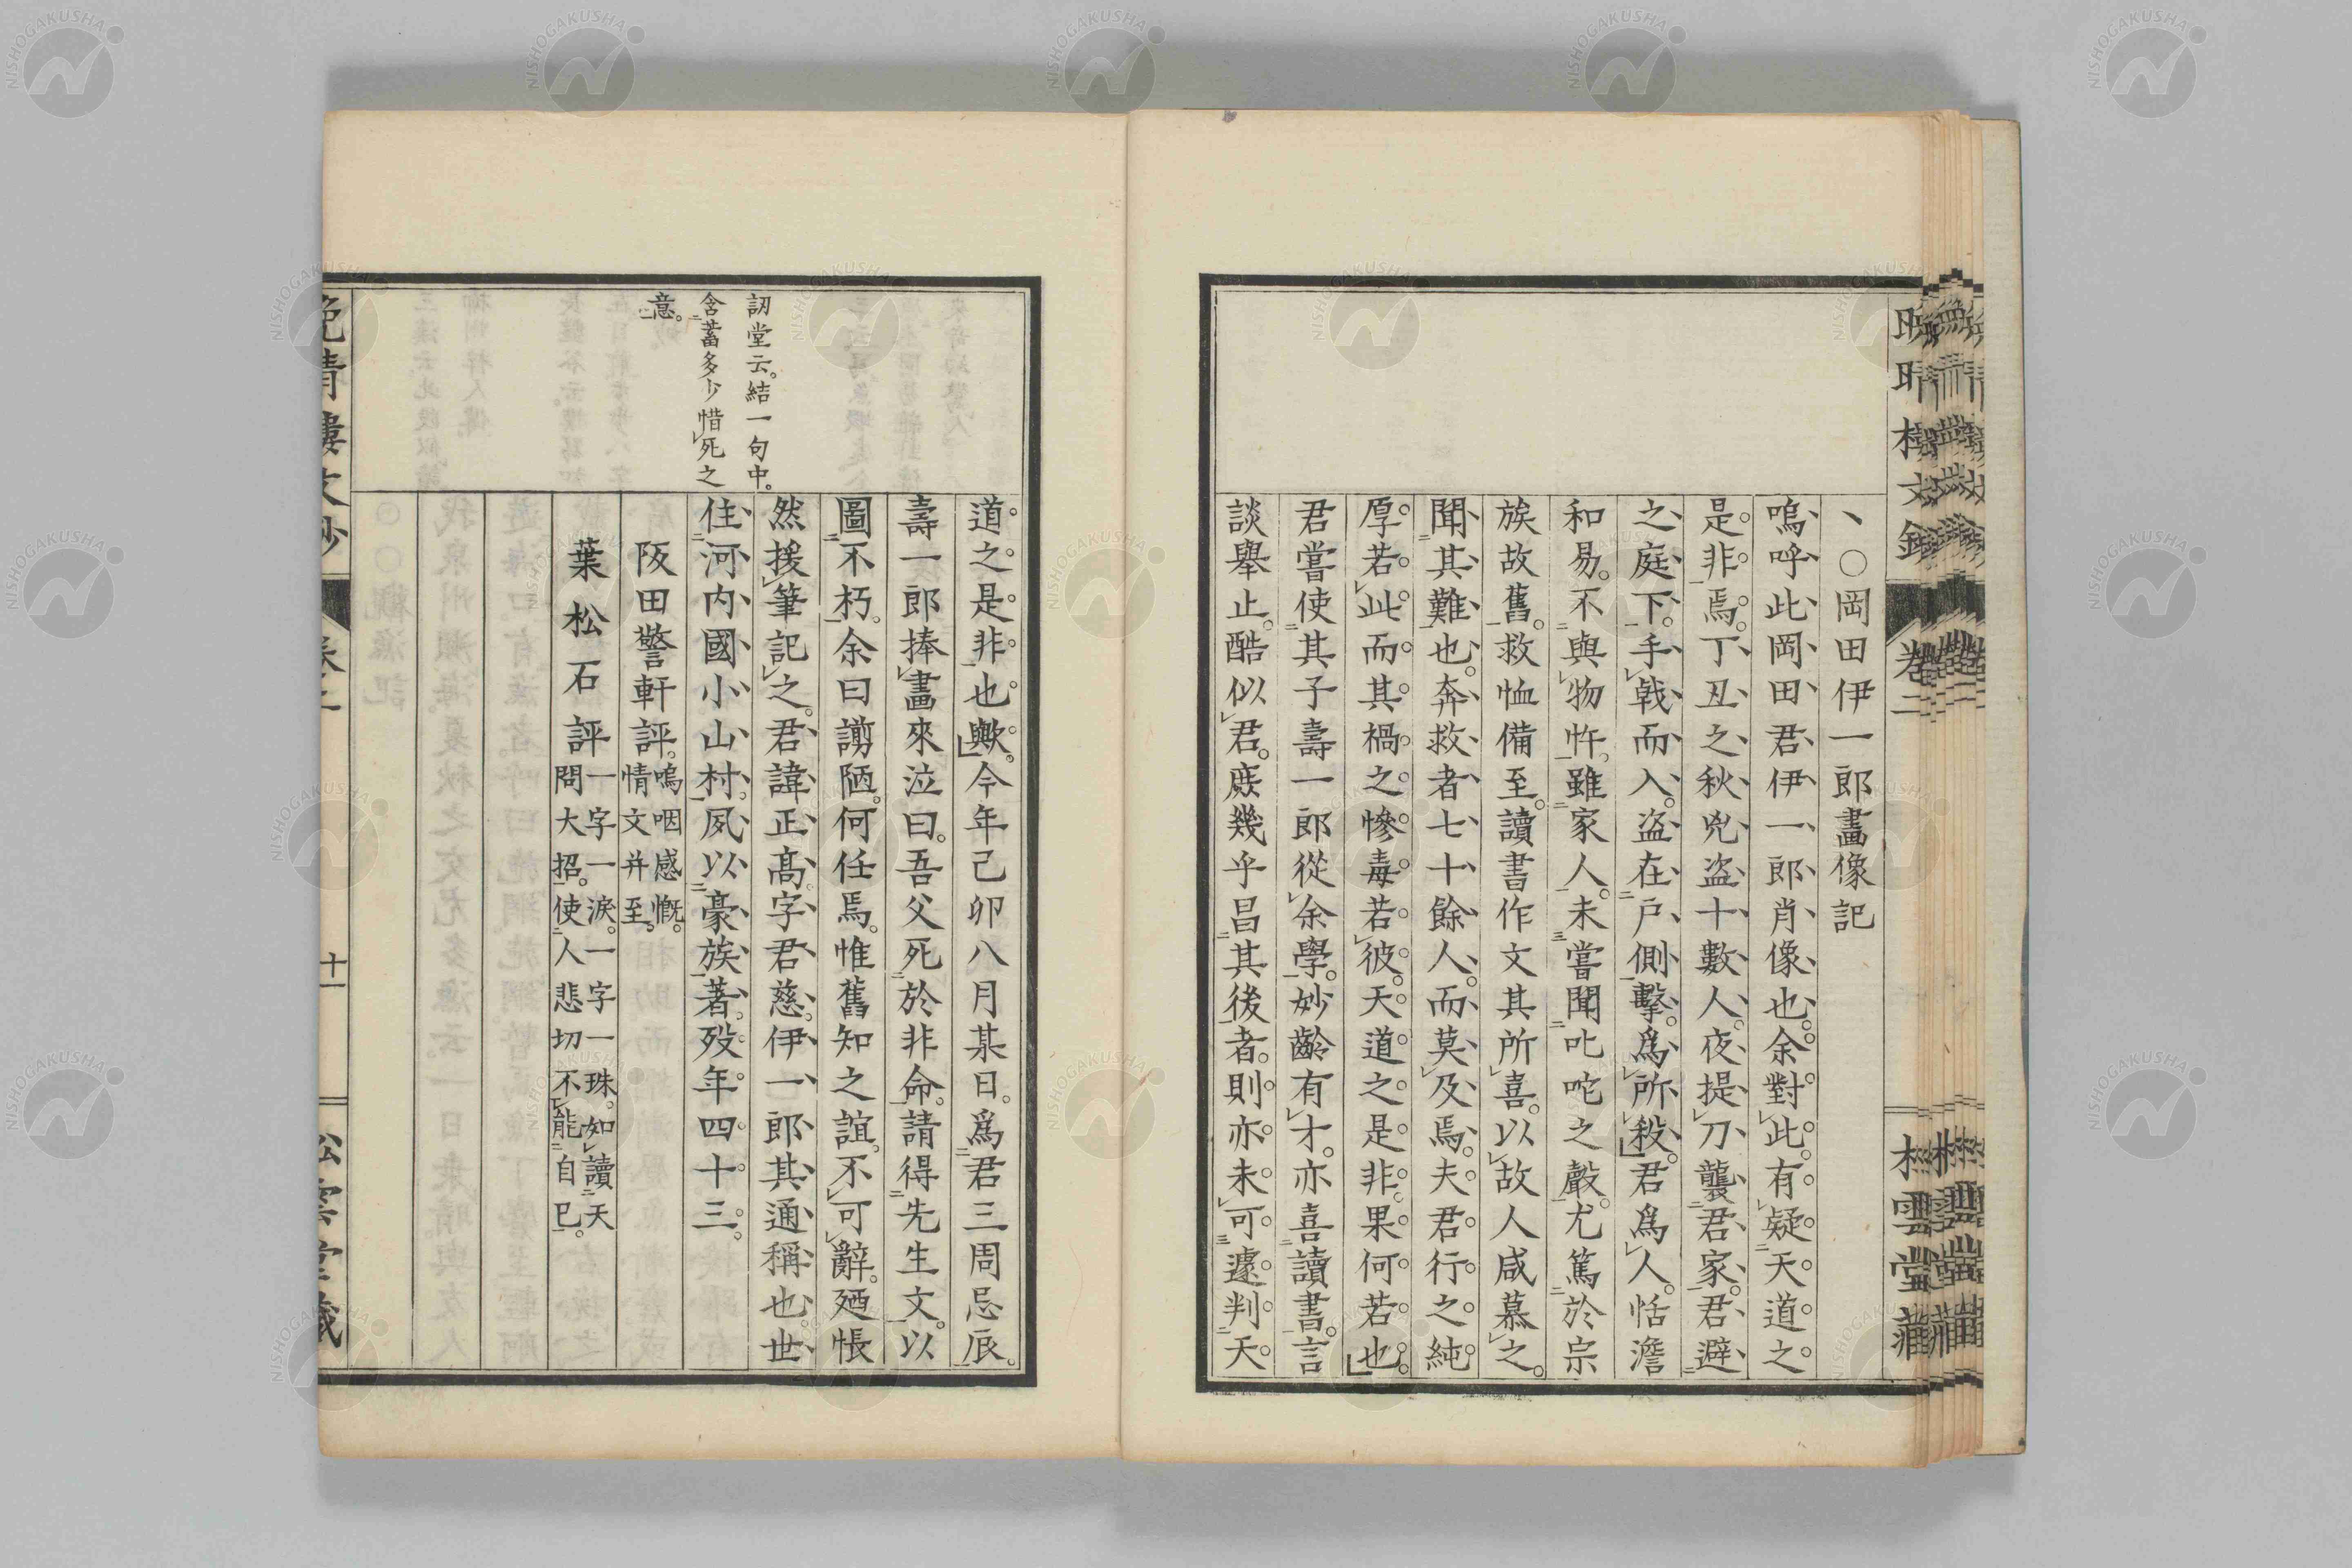 、○岡田伊一郎畫像記
嗚呼此岡田君伊一郎肖像也。余對此。有疑天道之
是非焉。丁丑之秋兇盜十數人。夜提刀襲君家。君避
之庭下。手戟而入。盜在戶側擊。爲所殺。君爲人。恬澹
和易。不與物忤。雖家人。未嘗聞叱咤之聲。尤篤於宗
族故舊。救恤備至。讀書作文其所喜。以故人咸慕之。
聞其難也。奔救者七十餘人。而莫及焉。夫君行之純
厚若此。而其禍之慘毒若彼。天道之是非。果何若也。
君嘗使其子壽一郎從余學。妙齡有才。亦喜讀書。言
談舉止。酷似君。庶幾乎昌其後者。則亦未可遽判天
道之是非也歟。今年己卯八月某日。爲君三周忌辰。
壽一郎捧畫來泣曰。吾父死於非命。請得先生文。以
圖不朽。余曰謭陋。何任焉。惟舊知之誼。不可辭。廼悵
然援筆記之。君諱正高。字君慈。伊一郎其通稱也。世
住河內國小山村。夙以豪族著。歿年四十三。
阪田警軒評。嗚咽感慨。
情文并至。
葉松石評一字一淚。一字一珠。如讀天
問大招。使人悲切不能自已。
訒堂云。結一句中。
含蓄多少惜死之
意。
晚晴樓文鈔
卷二
十一
松雲堂藏
卷二